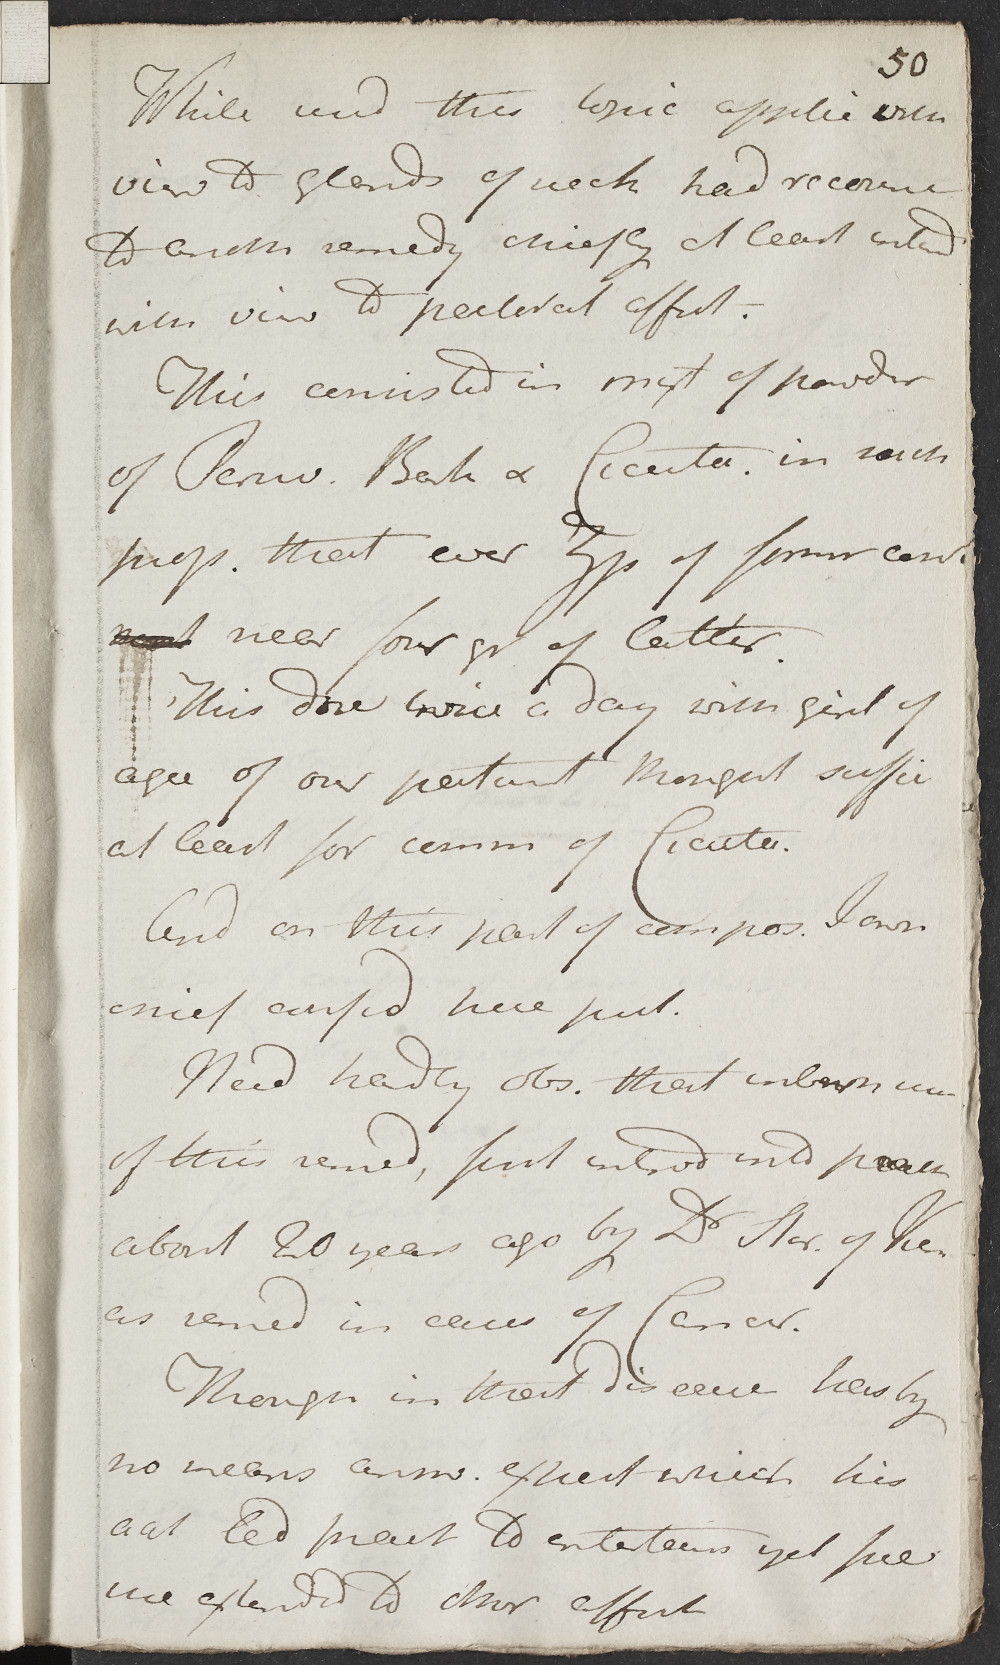 50
While used this topic applic with
view to glands of neck had recourse
to anoth remedy chiefly at least intend
with view to pectoral affect.
This consisted in mixt of powder
of Peruv. Bark & Cicuta. in such
prop. that ever of former cont
near four gr of latter.
This dose twice a day with girl of
age of our patient thought suffic
at least for comm of Cicuta.
And on this part of compos. I own
chief confid here put.
Need hardly obs. that intern use
of this remed, first introd into pract
about 20 years ago by Dr Stor. of Vien
as remed in cases of Cancer.
Though in that disease has by
no means answ. expect which his
act led pract to entertain yet free
use extended to other affect